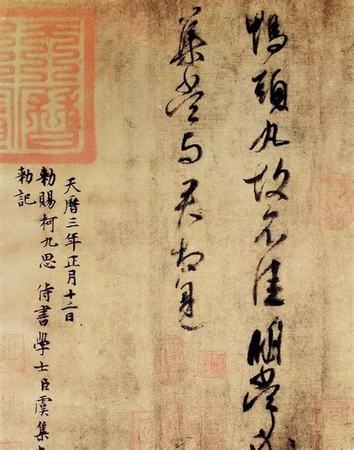 鴨頭丸故不佳明當必
集當与君相見
天曆三年正月十二日
勑賜柯九思侍書學士臣虞集
勑記